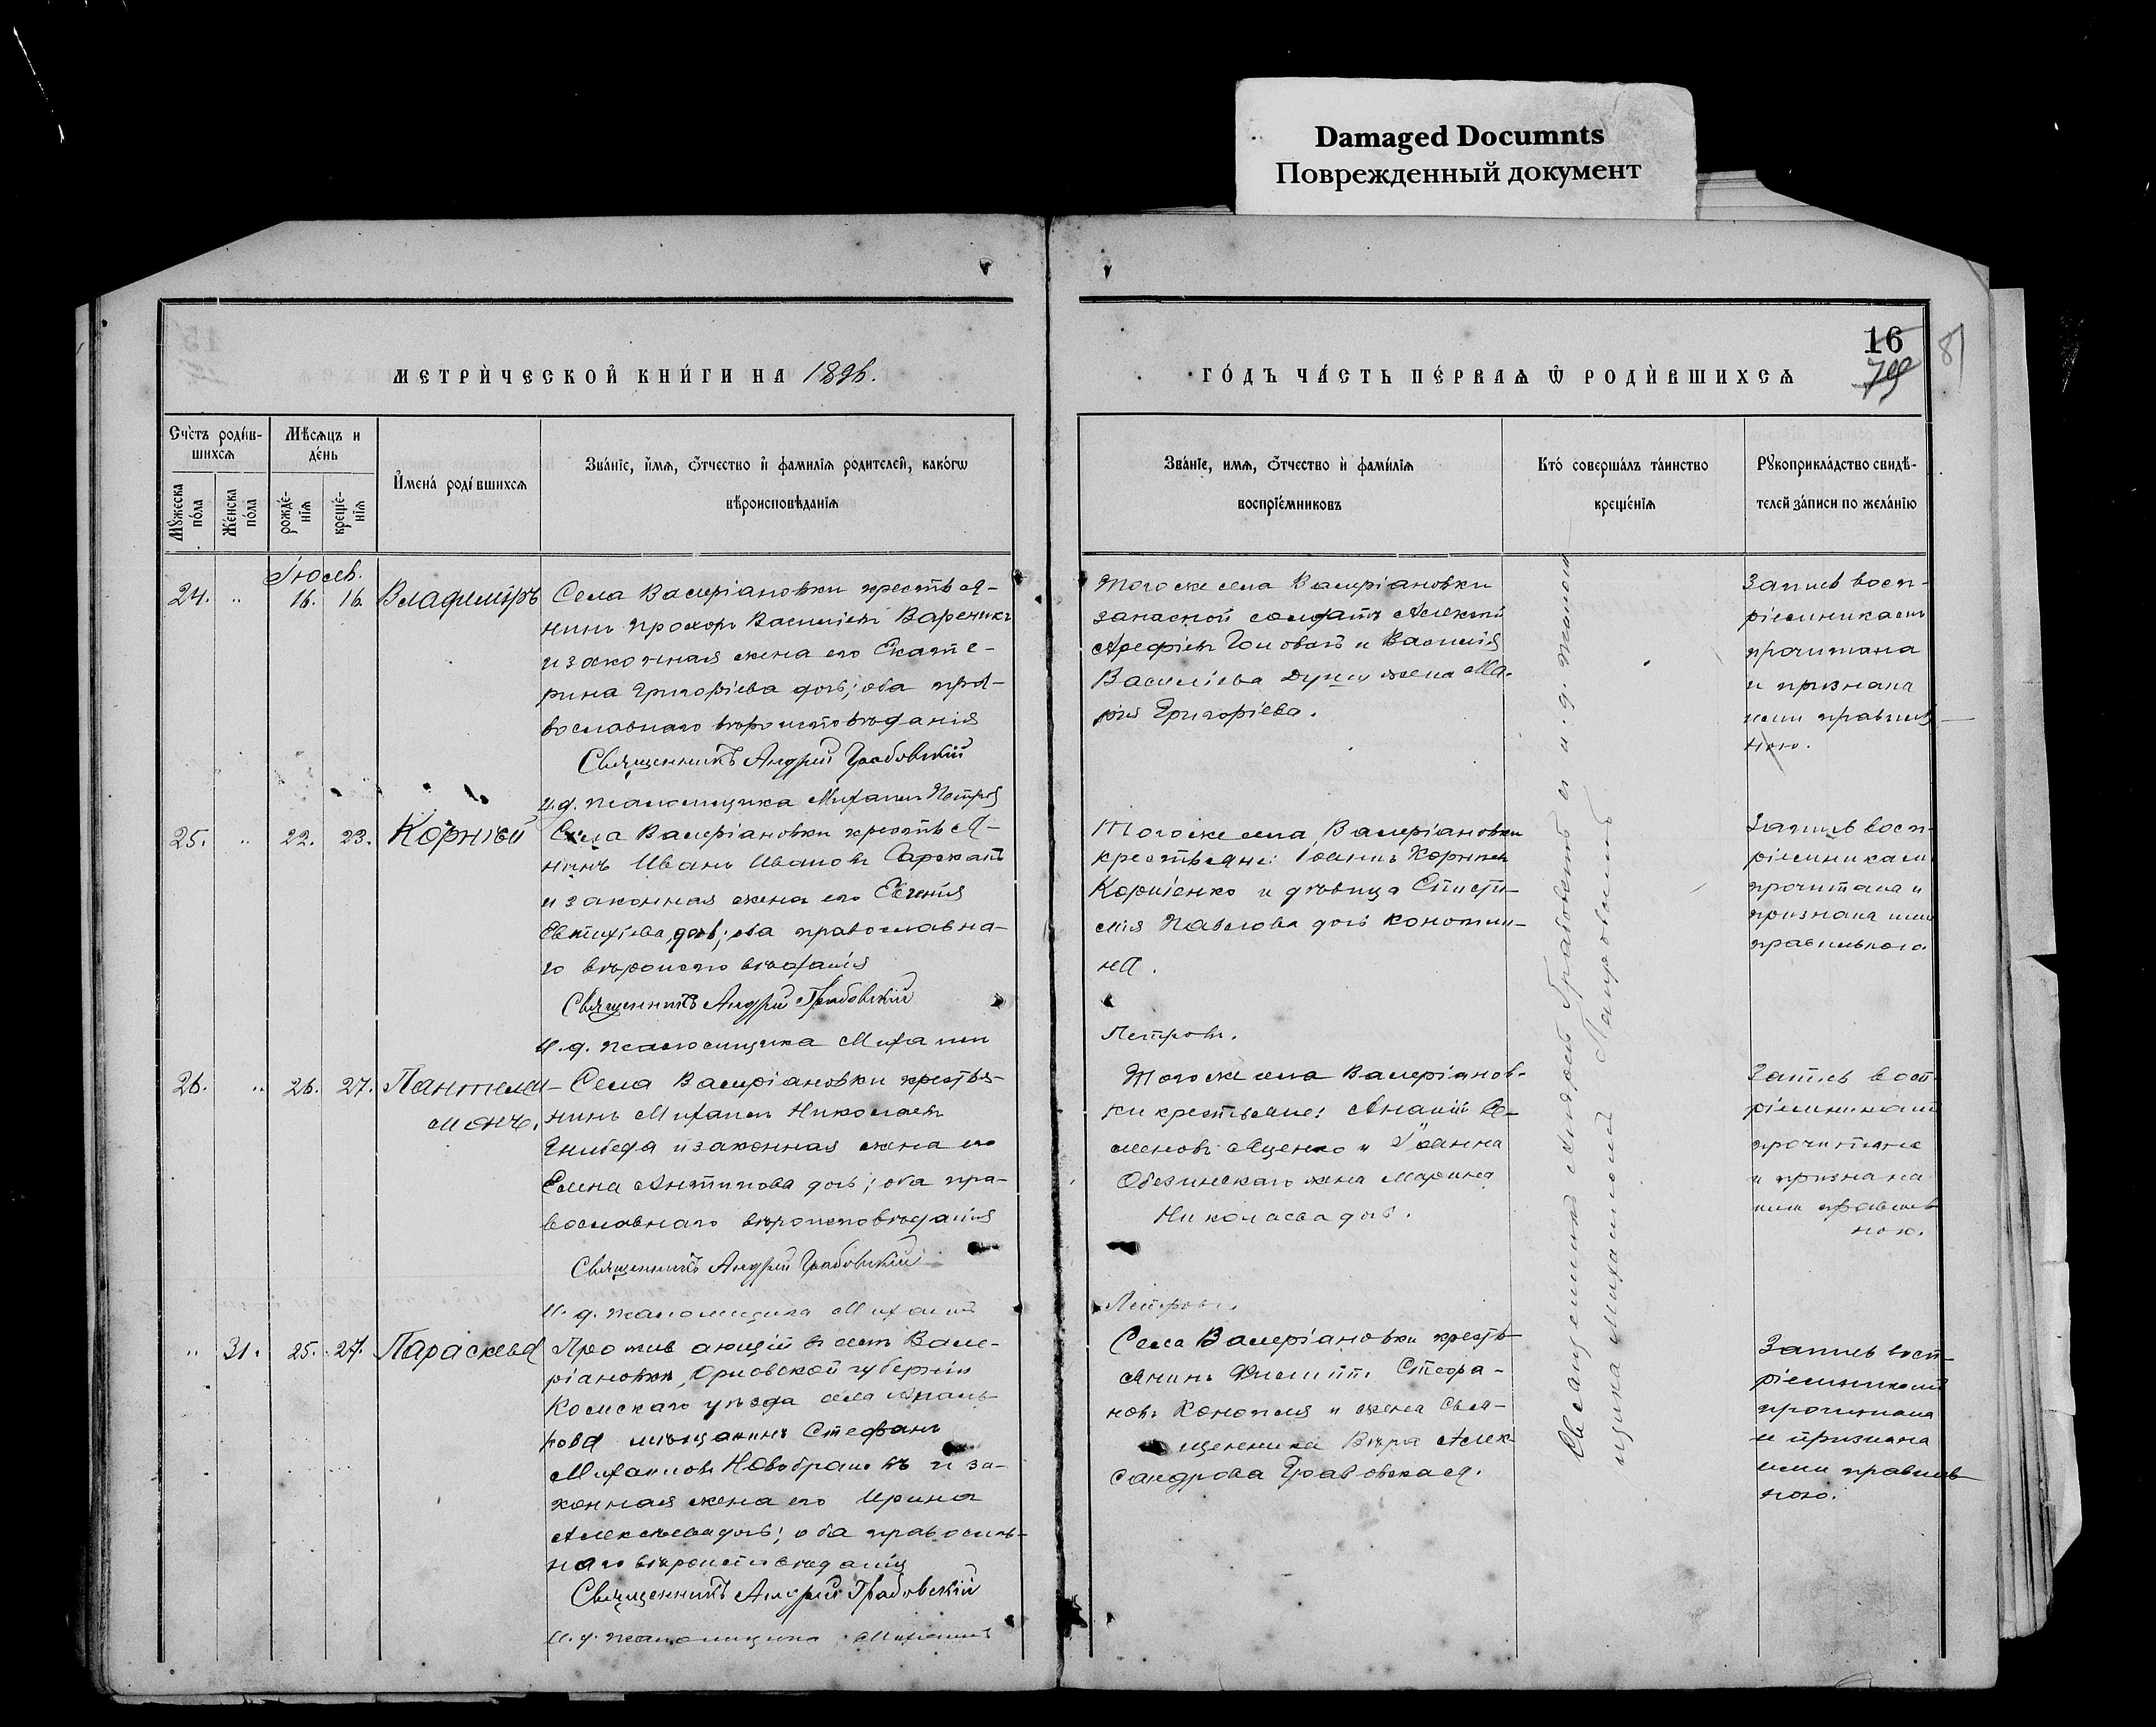 Damaged Documnts
Поврежденный документ
16
79
81
МЕТРИ́ЧЕСКОЙ КНИ́ГИ НА 1896.
ГО́ДЪ ЧА́СТЬ ПЕ́РВАѦ Ѡ҆ РОДИ́ВШИХСѦ
Счетъ роди́в-
шихсѧ
Мѣ́сѧцъ и
де́нь
Мꙋ́жеска
по́ла
Же́нска
по́ла
рожде́-
нїѧ
креще́-
нїѧ
И҆мена́ роди́вшихсѧ
Зва́нїе, и҆́мѧ, ѻ҆́тчество и҆ фами́лїѧ роди́телей, како́гѡ
вѣроисповѣ́данїѧ
Зва́нїе, имѧ, ѻ҆́тчество и҆ фами́лїѧ
воспрїе́мниковъ
Кто́ соверша́лъ та́инство
креще́нїѧ
Рꙋкоприкла́дство свидѣ́-
телей за́писи по жела́нїю
Іюль.
24. " 16. 16. Владиміръ
Села Валеріановки крестья-
нинъ Прохоръ Василіевъ Вареникъ
и законная жена его Екате-
рина Григоріева дочь; оба пра-
вославнаго вѣроисповѣданія
Священникъ Андрей Грабовскій
И. д. псаломщика Михаилъ Петровъ
Тогоже села Валеріановки
запасной солдатъ Алексій
Арефіевъ и Василія
Василіева жена Ма-
рія Григоріева.
Запись восп-
ріемникамъ
прочитана
и признана
ими правиль-
ною.
25. " 22. 23. Корнилій
Села Валеріановки крестья-
нинъ Иванъ Ивановъ
и законная жена его Евгенія
Евтихіева дочь; оба православна-
го вѣроисповѣданія
Священникъ Андрей Грабовскій
И. д. псаломщика Михаилъ
Петровъ.
Тогоже села Валеріановки
крестьяне: Іоаннъ
Корніенко и дѣвица
Павлова дочь
на.
Запись восп-
ріемникамъ
прочитана и
признана ими
правильною.
26. " 26. 27. Пантелеи-
монъ.
Села Валеріановки крестья-
нинъ Михаилъ Николаевъ
Гнибеда и законная жена его
Елена Антипова дочь; оба пра-
вославнаго вѣроисповѣданія
Священникъ Андрей Грабовскій
И. д. псаломщика Михаилъ
Петровъ.
Тогоже села Валеріанов-
ки крестьяне: Ананій Се-
меновъ Яценко и Іоанна
жена Марина
Николаева дочь.
Запись восп-
ріемникамъ
прочитана
и признана
ими правиль-
ною.
" 31. 25. 27. Параскева
Проживающій въ селѣ Вале-
ріановкѣ, Орловской губерніи
уѣзда села
мѣщанинъ Стефанъ
Михаиловъ и за-
конная жена его Ирина
Алексѣева дочь; оба православ-
наго вѣроисповѣданія
Священникъ Андрей Грабовскій
И. д. псаломщика Михаилъ
Села Валеріановки кресть-
янинъ Филиппъ Стефа-
новъ Конопля и жена Свя-
щенника Вѣра Алек-
сандрова Грабовская.
Запись восп-
ріемникамъ
прочитана
и признана
ими правиль-
ною.
Священникъ Андрей Грабовскій съ и. д. псалом-
щика Михаиломъ Петровымъ